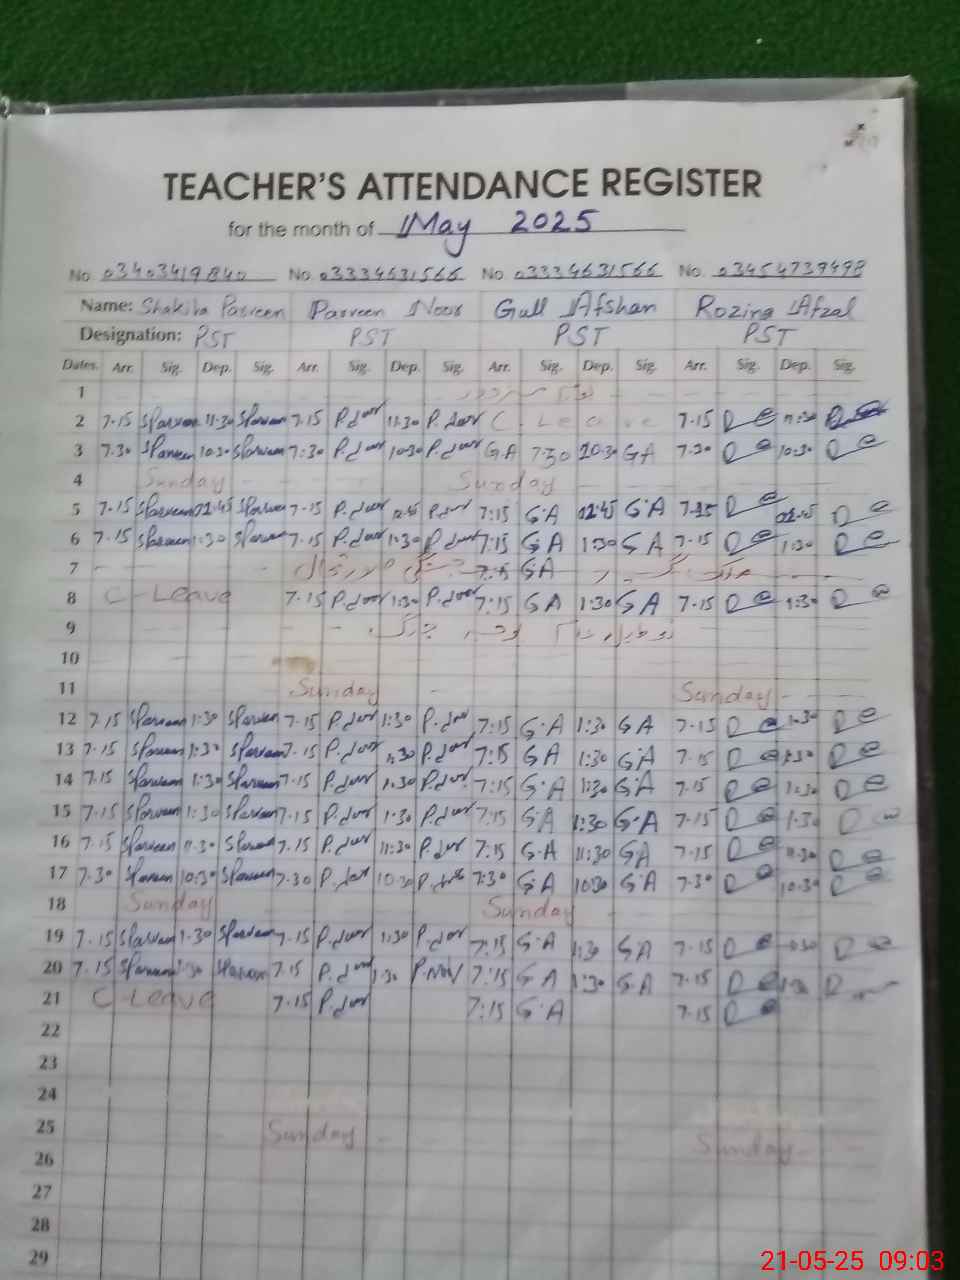 TEACHER'S ATTENDANCE REGISTER
for the month of May 2025
No. 03403419840 No. 03334631566 No. 03334631566 No. 03454739498
Name: Shakila Parveen Parveen Noor Gull Afshan Rozina Afzal
Designation: PST PST PST PST
Dates. Arr. Sig. Dep. Sig. Arr. Sig. Dep. Sig. Arr. Sig. Dep. Sig. Arr. Sig. Dep. Sig.
1
2 7.15 SParveen 11:30 SParveen 7.15 P.Noor 11:30 P.Noor C. Leave 7.15 11:30
3 7.30 SParveen 10:30 SParveen 7:30 P.Noor 10:30 P.Noor G.A 7:30 10:30 GA 7.30 10:30
4 Sunday Sunday
5 7.15 SParveen 02:45 SParveen 7.15 P.Noor 12:45 P.Noor 7:15 G.A 02:45 G.A 7.15 02:45
6 7.15 SParveen 1:30 SParveen 7.15 P.Noor 1:30 P.Noor 7:15 G.A 1:30 G A 7.15 1:30
7 7:15 GA
8 C-Leave 7.15 P.Noor 1:30 P.Noor 7:15 G A 1:30 G A 7-15 1:30
9
10
11 Sunday Sunday
12 7.15 SParveen 1:30 SParveen 7.15 P.Noor 1:30 P.Noor 7:15 G.A 1:30 G A 7-15 1:30
13 7-15 SParveen 1:30 SParveen 7.15 P.Noor 1:30 P.Noor 7:15 G A 1:30 G A 7.15 1:30
14 7.15 SParveen 1:30 SParveen 7-15 P.Noor 1:30 P.Noor 7:15 G.A 1:30 G.A 7.15 1:30
15 7.15 SParveen 1:30 SParveen 7.15 P.Noor 1:30 P.Noor 7:15 G A 1:30 G.A 7.15 1:30
16 7.15 SParveen 11:30 SParveen 7.15 P.Noor 11:30 P.Noor 7:15 G.A 11:30 G A 7.15 11:30
17 7.30 SParveen 10:30 SParveen 7.30 P.Noor 10:30 P.Noor 7:30 G.A 10:30 G.A 7.30 10:30
18 Sunday Sunday
19 7.15 SParveen 1:30 SParveen 7.15 P.Noor 1:30 P.Noor 7:15 G.A 1:30 G A 7.15
20 7.15 SParveen 1:30 SParveen 7.15 P.Noor 1:30 P.Noor 7:15 G A 1:30 G.A 7.15 1:30
21 C-Leave 7.15 P.Noor 7:15 G.A 7.15
22
23
24
25 Sunday
26 Sunday
27
28
29
21-05-25 09:03